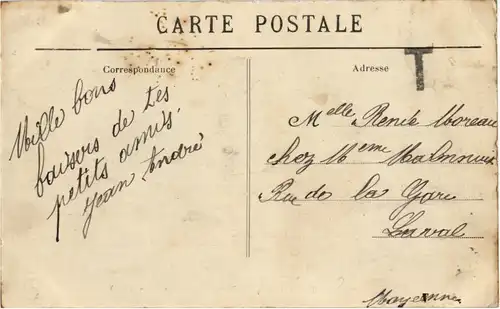 CARTE POSTALE
Correspondance
Mille bons
baisers de tes
petits amis.
Jean André
Adresse
T
Melle Renée Moreau
chez Mme
Rue de la Gare
Laval
Mayenne